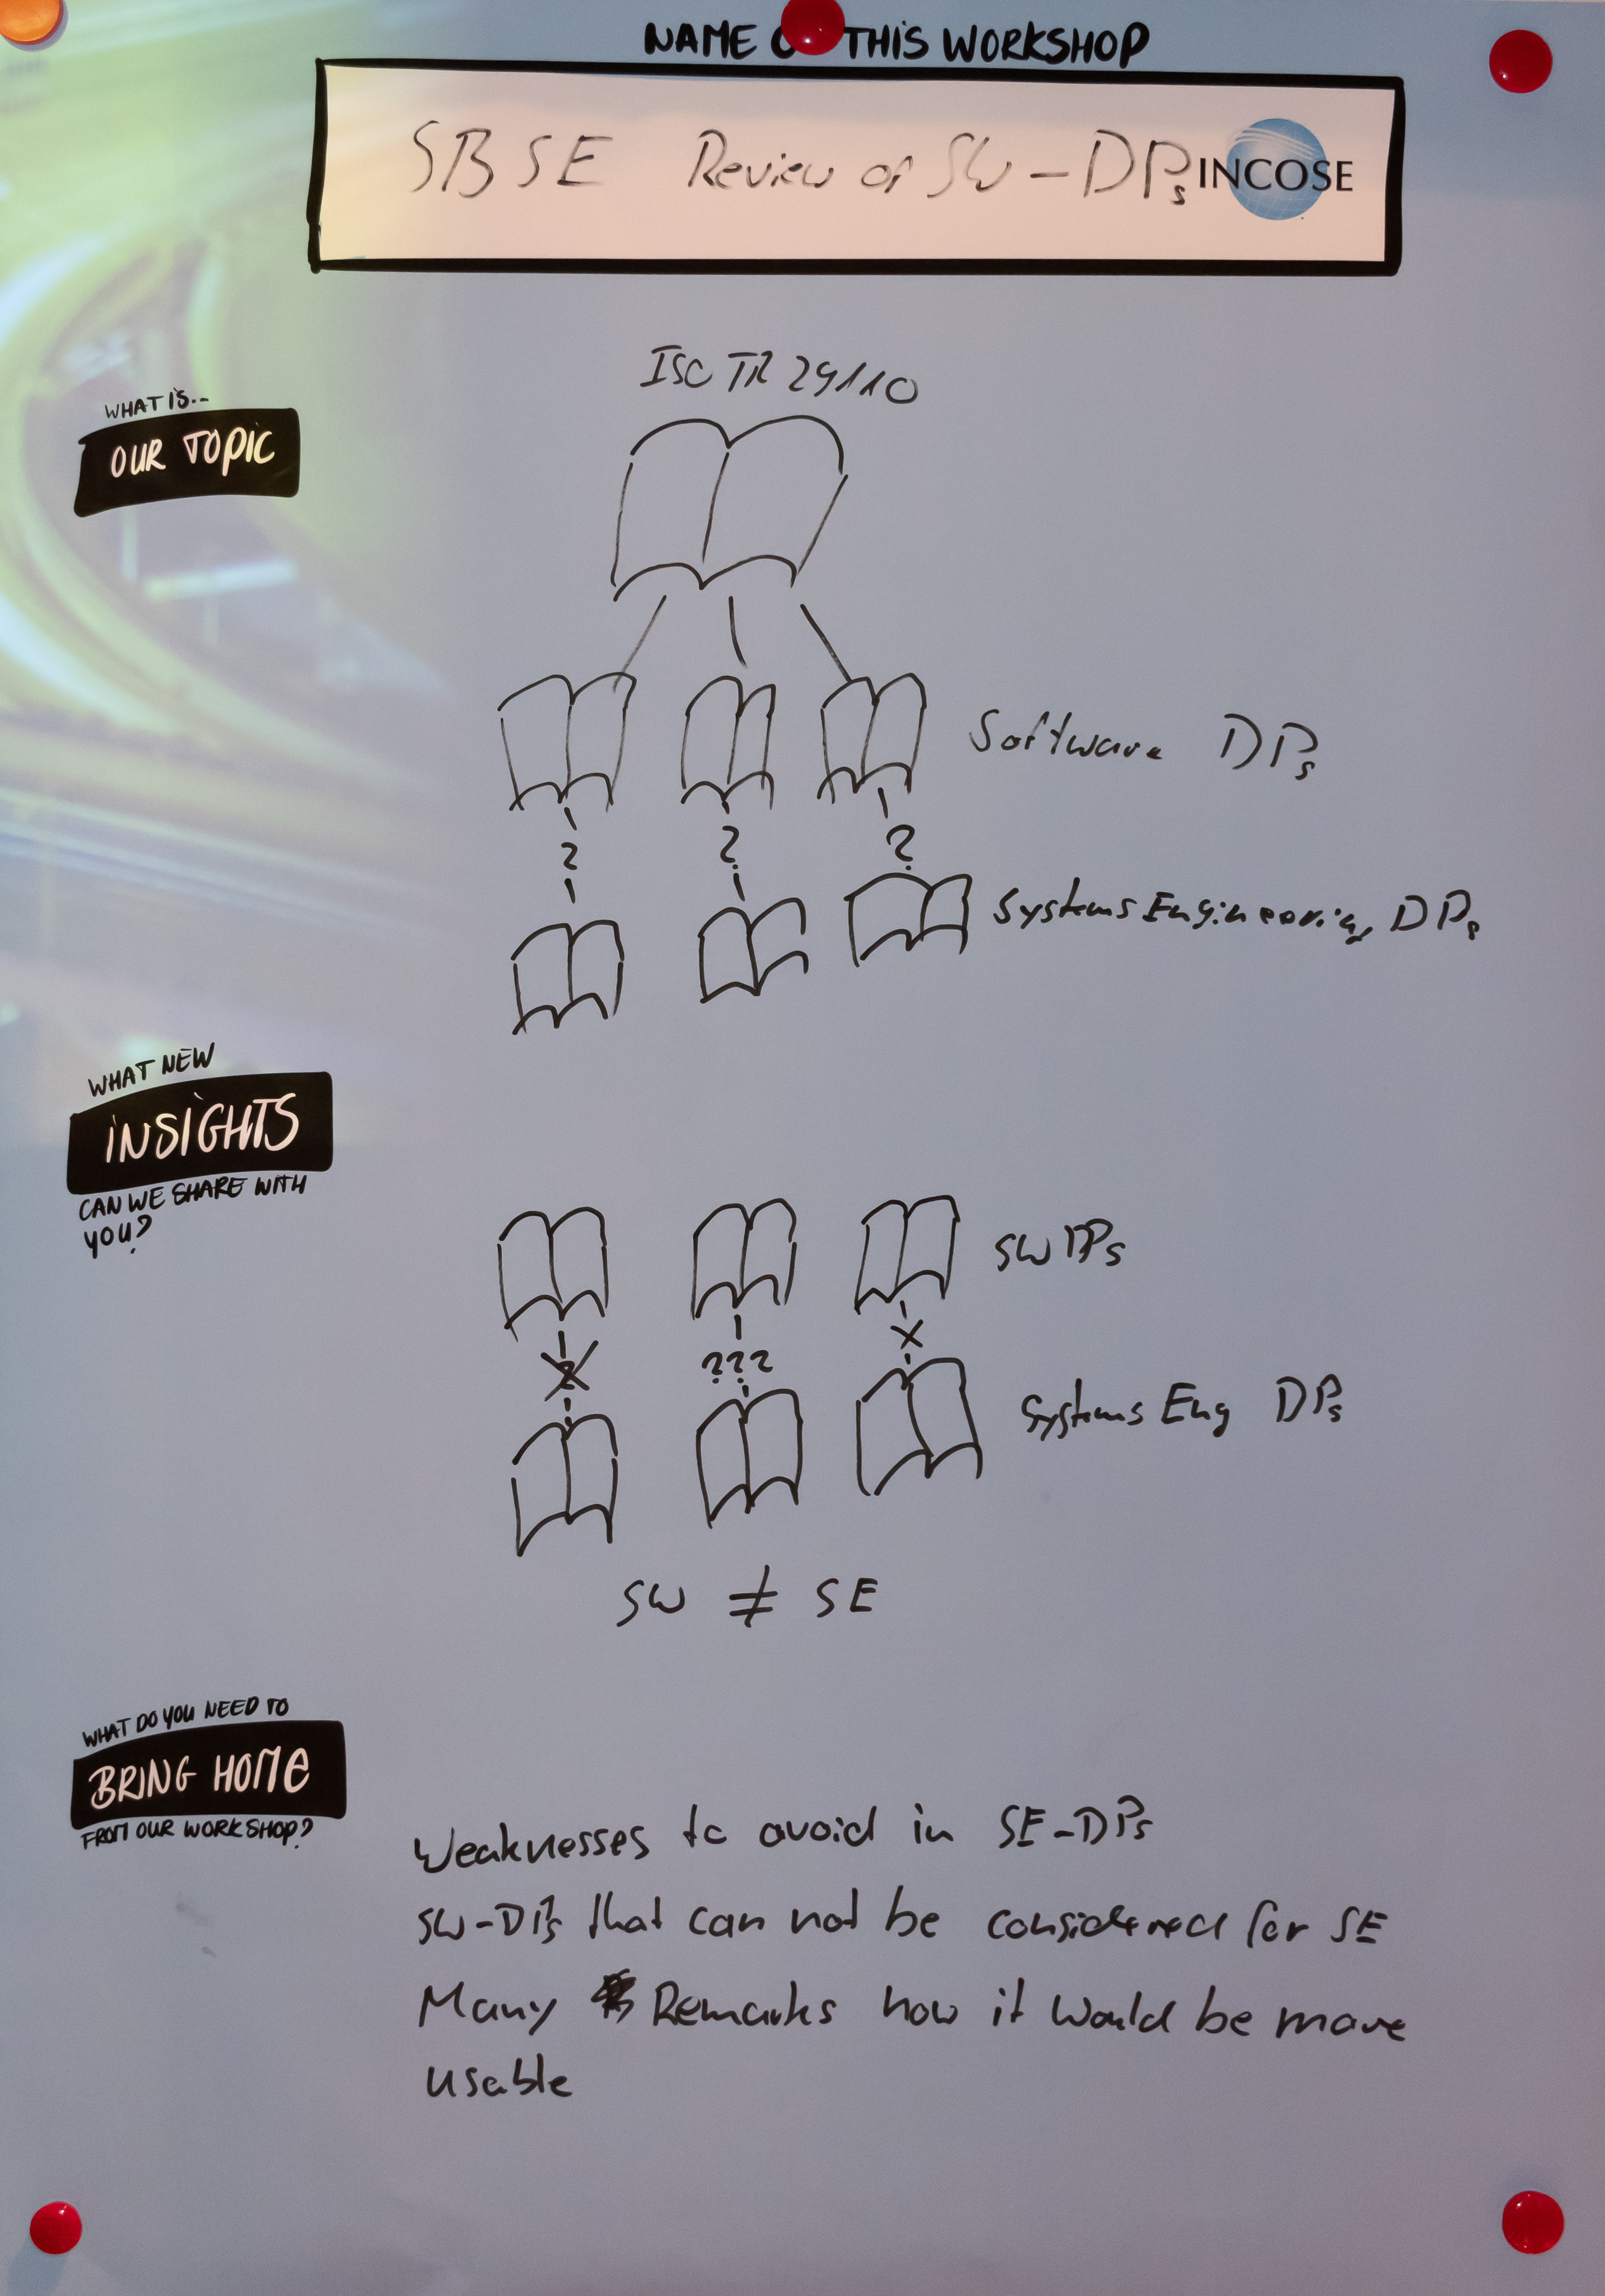 NAME THIS WORKSHOP
SBSE Review of SW-DPs INCOSE
ISO TR 29110
WHAT IS...
OUR TOPIC
Software DPs
?
?
?
Systems Engineering DPs
WHAT NEW
INSIGHTS
CAN WE SHARE WITH
YOU?
SW DPs
???
Systems Eng DPs
SW ≠ SE
WHAT DO YOU NEED TO
BRING HOME
FROM OUR WORKSHOP?
Weaknesses to avoid in SE-DPs
SW-DPs that can not be considered for SE
Many Remarks how it would be more
usable